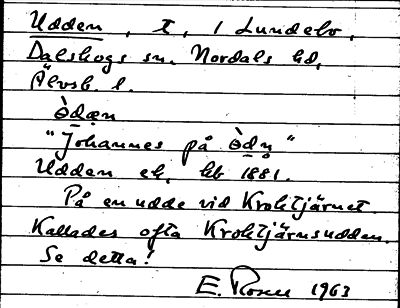 Udden, t, 1 Lundebo,
Dalskogs sn. Nordals hd,
Älvsb. l.
ò̱dæn
"Johannes på ò̱dn̥"
Udden ek. hb 1881.
På en udde vid Kroktjärnet.
Kallades ofta Kroktjärnsudden.
Se detta!
E. Rosén 1963